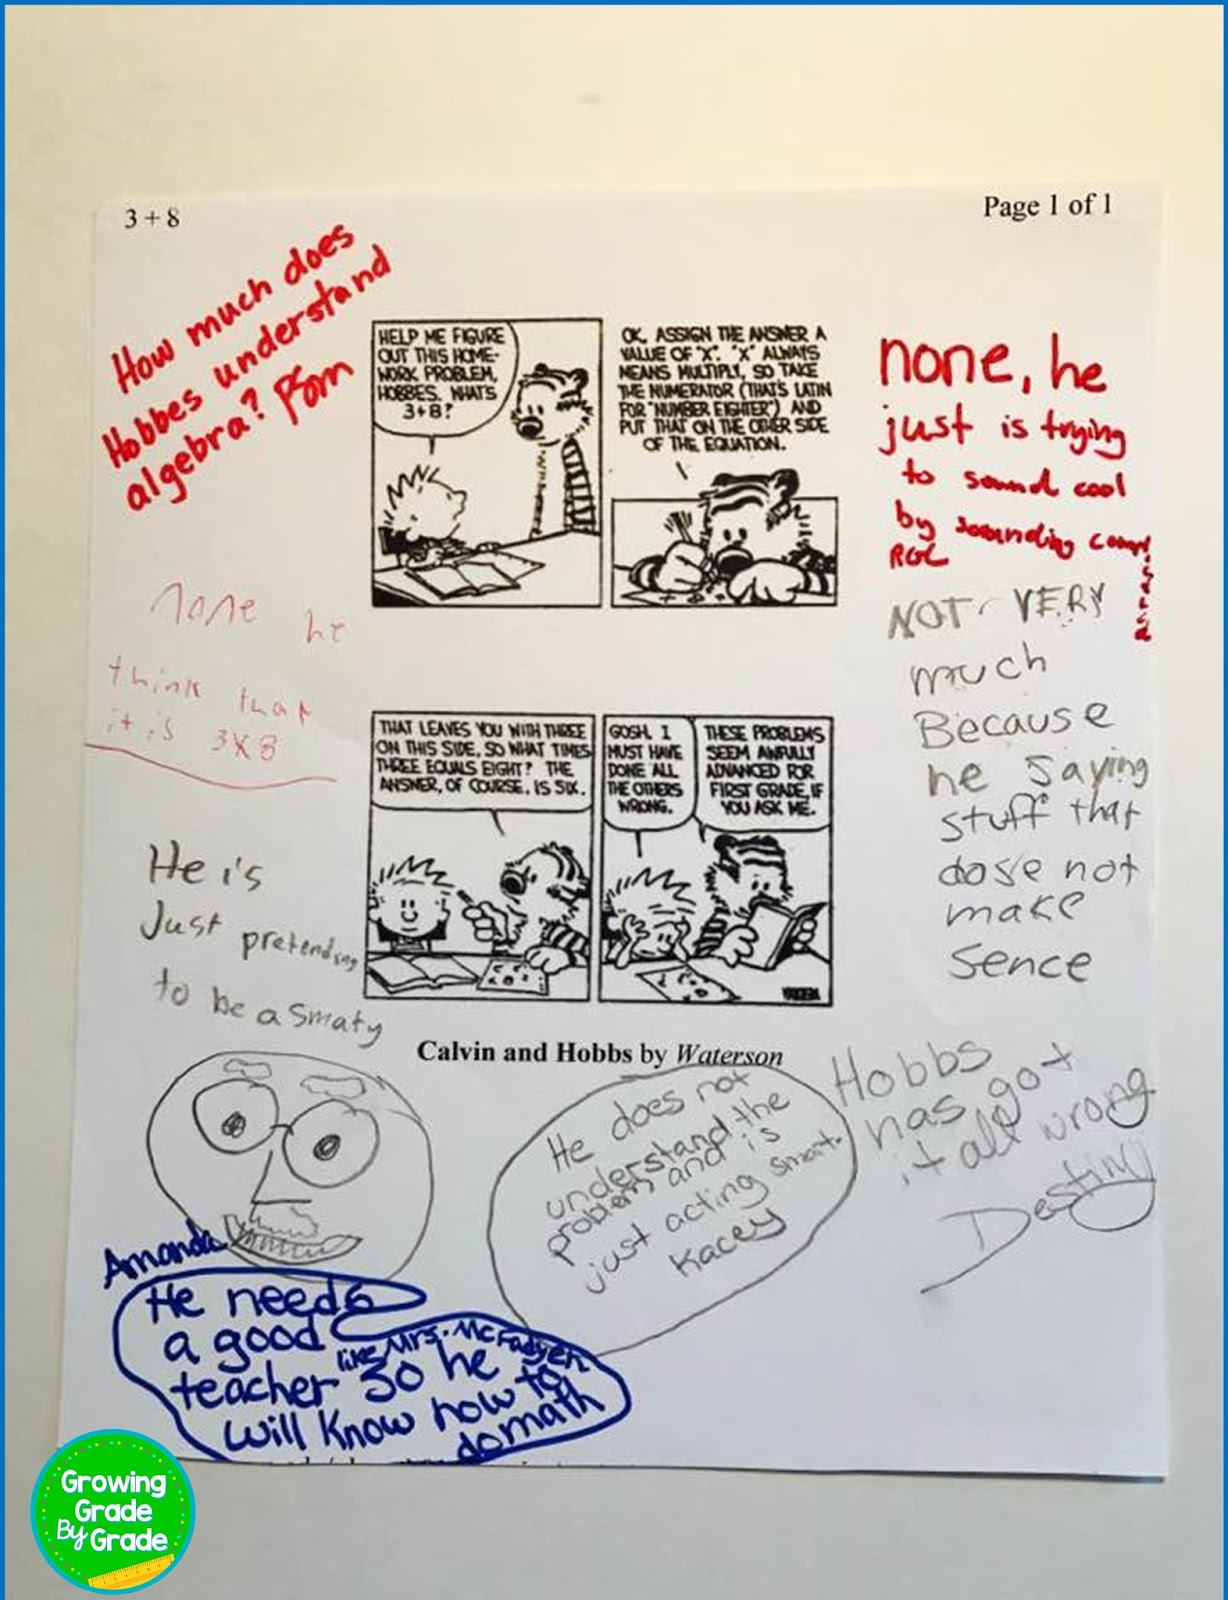 3 + 8
Page 1 of 1
How much does
Hobbes understand
algebra?
HELP ME FIGURE
OUT THIS HOME-
WORK PROBLEM,
HOBBES. WHAT'S
3+8?
OK. ASSIGN THE ANSWER A
VALUE OF "X". "X" ALWAYS
MEANS MULTIPLY, SO TAKE
THE NUMERATOR (THAT'S LATIN
FOR "NUMBER EIGHTER") AND
PUT THAT ON THE OTHER SIDE
OF THE EQUATION.
none, he
just is trying
to sound cool
by sounding
RGL
none he
think that
it is 3X8
NOT VERY
much
Because
he saying
stuff that
dose not
make
sence
THAT LEAVES YOU WITH THREE
ON THIS SIDE, SO WHAT TIMES
THREE EQUALS EIGHT? THE
ANSWER, OF COURSE, IS SIX.
GOSH. I
MUST HAVE
DONE ALL
THE OTHERS
WRONG.
THESE PROBLEMS
SEEM AWFULLY
ADVANCED FOR
FIRST GRADE, IF
YOU ASK ME.
He is
Just pretending
to be a smaty
Calvin and Hobbs by Waterson
He does not
understand the
problem and is
just acting smart.
Kacey
Hobbs
has got
it all wrong
Destiny
Amanda
He needs
a good
teacher like Mrs. McFadyen so he
will know how to
do math
Growing
Grade
By Grade